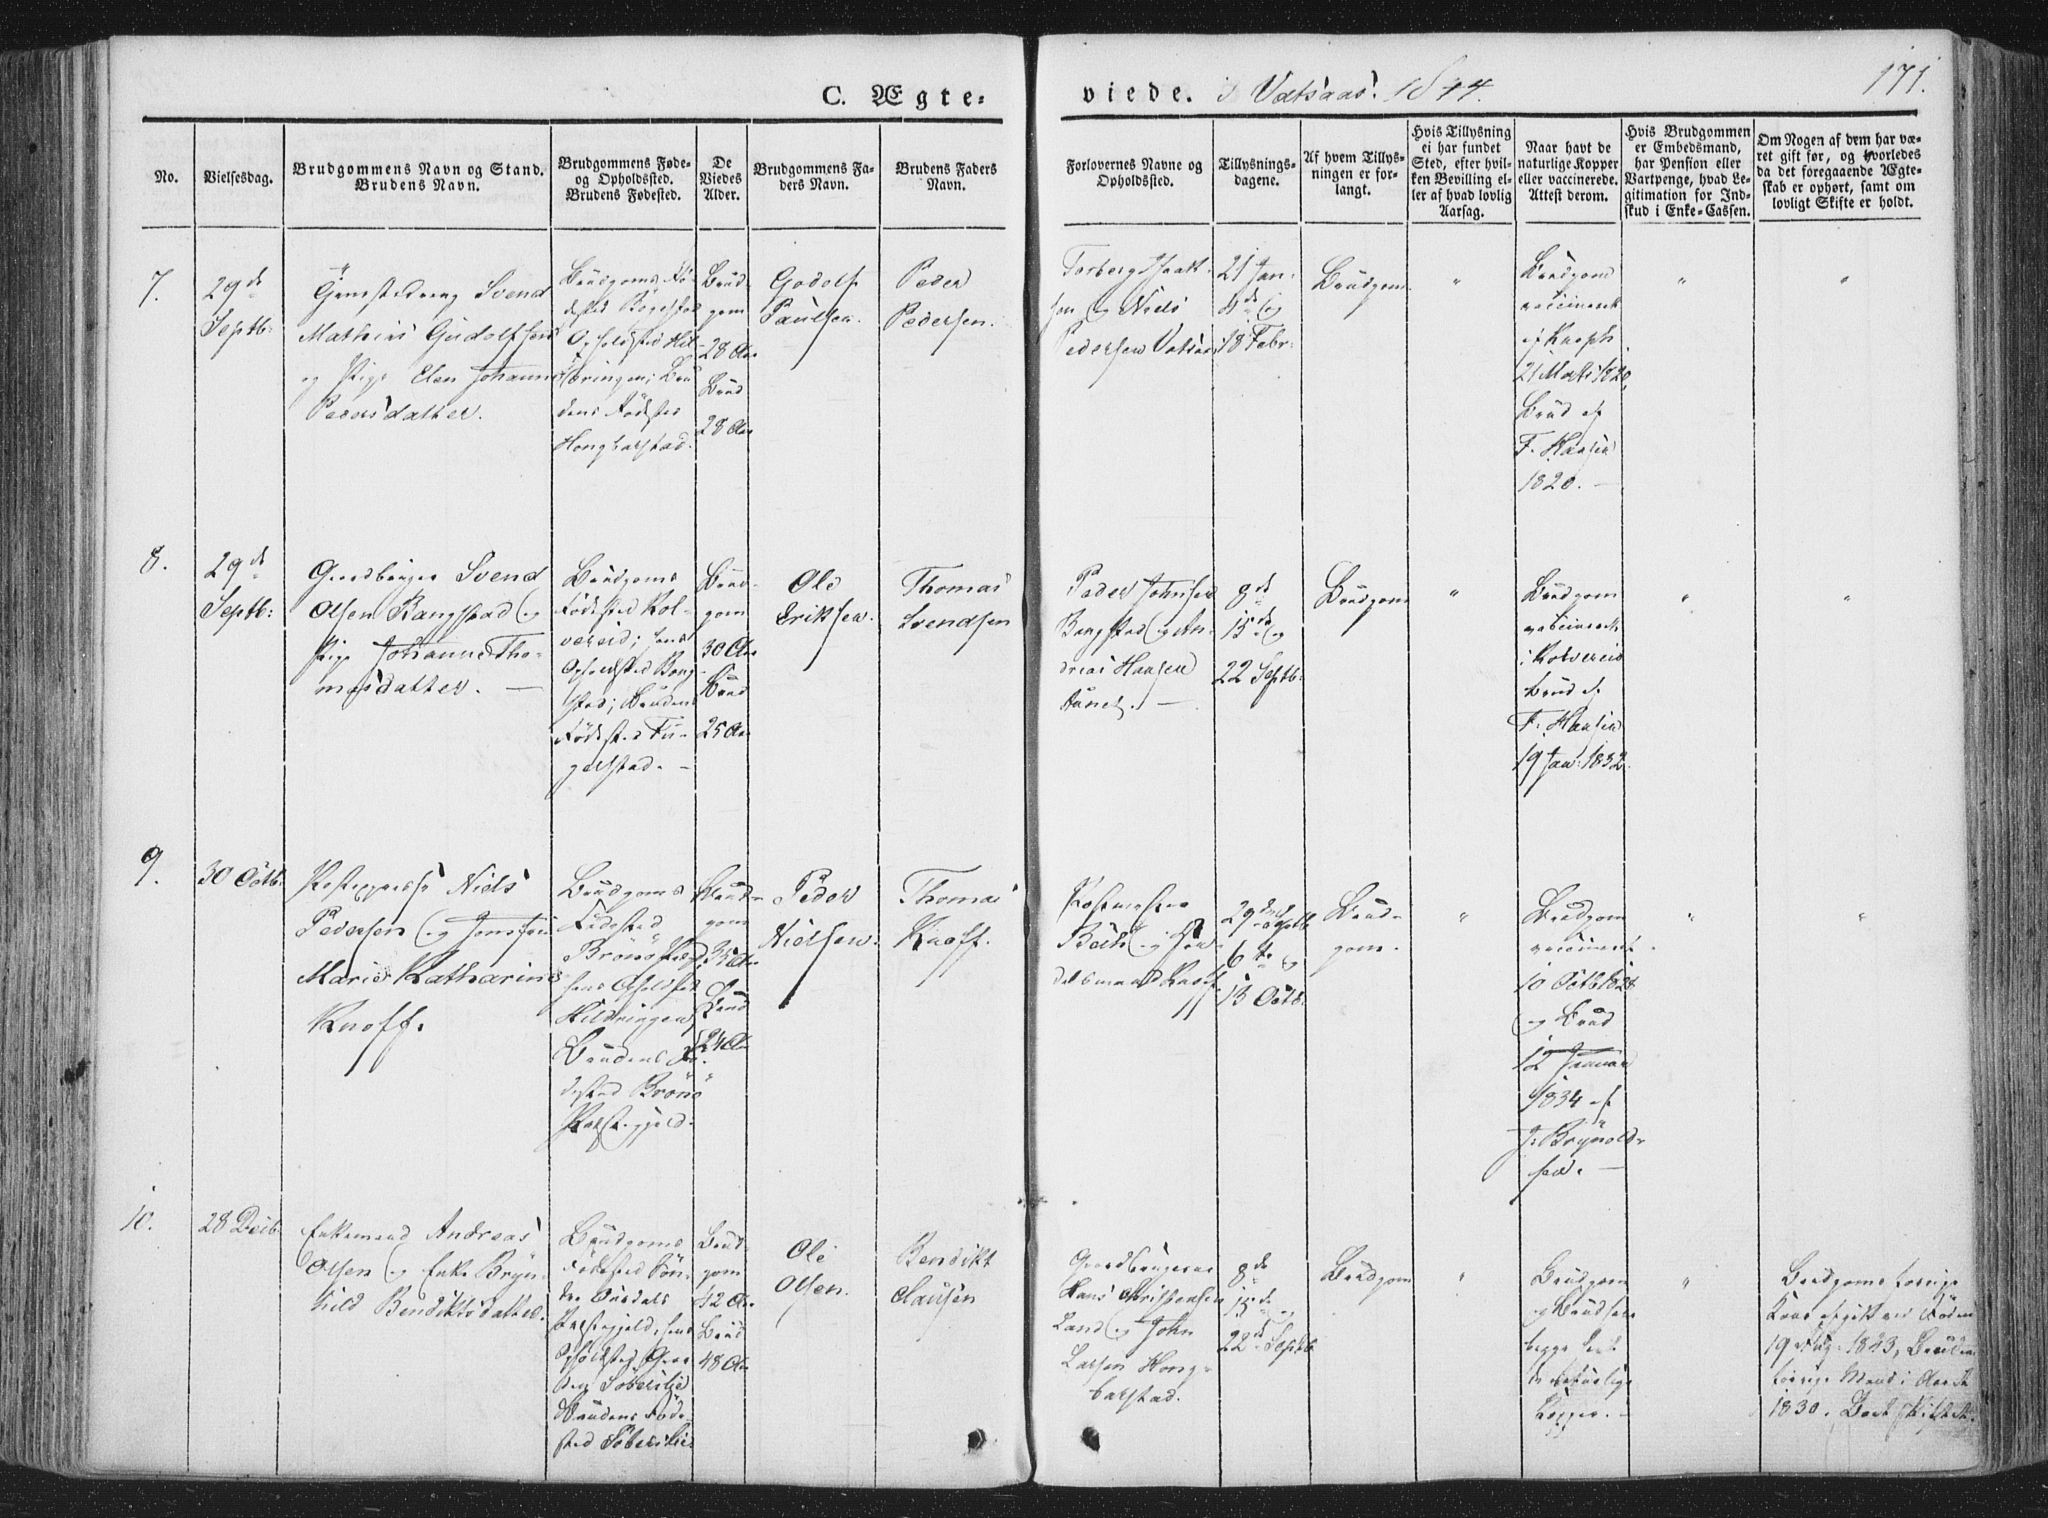 C. Ægte-
viede. i Vatsaas. 1844.
171.
No.
Vielsesdag.
Brudgommens Navn og Stand.
Brudens Navn.
Brudgommens Føde-
og Opholdssted.
Brudens Fødested.
De
Viedes
Alder.
Brudgommens Fa-
ders Navn.
Brudens Faders
Navn.
Forlovernes Navne og
Opholdssted.
Tillysnings-
dagene.
Af hvem Tillys-
ningen er for-
langt.
Hvis Tillysning
ei har fundet
Sted, efter hvil-
ken Bevilling el-
ler af hvad lovlig
Aarsag.
Naar havt de
naturlige Kopper
eller vaccinerede.
Attest derom.
Hvis Brudgommen
er Embedsmand,
har Pension eller
Vartpenge, hvad Le-
gitimation for Ind-
skud i Enke-Cassen.
Om Nogen af dem har væ-
ret gift før, og hvorledes
da det foregaaende Ægte-
skab er ophørt, samt om
lovligt Skifte er holdt.
7.
29de
Septb:
Svend
Mathias Gudolfsen
og Pige Elen Johanna
Pedersdatter.
Brudgoms Fö-
dested
Opholdsted Hil-
dringen; Bru
dens Födested
Hongbarstad.
Brud-
gom
28 Aar
Brud
28 Aar
Godolf
Paulsen.
Peder
Pedersen.
Torberg Isaak-
sen og Niels
Pedersen Vatsaas
21 Jan-
4de og
18 Febr:
Brudgom
"
Brudgom
vaccineret
af Knoph
21 Mai 1820,
Brud af
F. Hansen
1820. —
"
"
8.
29de
Septb:
Gaardbruger Svend
Olsen Bangstad og
Pige Johanna Tho-
masdatter. —
Brudgoms
Födested Kol-
vereid; hans
Opholdsted Bang
stad; Brudens
Födested Fu-
gelstad. -
Brud-
gom
30 Aar
Brud
25 Aar
Ole
Eriksen.
Thomas
Svendsen
Peder Johnsen
Bangstad og An-
dreas Hansen
Aunet. —
8de
15de og
22 Septb:
Brudgom
"
Brudgom
vaccineret
i Kolvereid
Brud af
F. Hansen
19 Jan: 1832.
"
"
9.
30 Octb:
Niels
Pedersen og Jomfru
Marie Katharina
Knoff.
Brudgoms
Födested
Brönö Præstg
hans Opholdsted
Hildringen,
Brudens Fö-
dested Brönö
Præstegjeld.
Brud-
gom
35 Aar
Brud
24 Aar
Peder
Nielsen.
Thomas
Knoff.
Postmester
Bech og Han-
delsmand Knoff
29de Septb
6te og
13 Octb:
Brud-
gom.
"
Brudgom
vaccineret
10 Octb 1828
og Brud
12 Januar
1834 af
J. Brynold-
sen. —
"
"
10.
28 Decb
Enkemand Andreas
Olsen og Enke Bryn-
hild Bendiktsdatter.
Brudgoms
Födested Sön-
dre Aurdals
Præstegjeld, hans
Opholdsted Gaar
den Söberslie
Brudens Föde-
sted Söberslie
Brud-
gom
42 Aar
Brud
48 Aar
Ole
Olsen.
Bendikt
Clausen
Gaardbrugerne
Hans Christensen
Land og John
Larsen Hong-
barstad.
8de
15de og
22de Septb
Brudgom
"
Brudgom
og Brud have
begge havt
de naturlige
Kopper. -
"
Brudgoms forrige
Kone afgik ved Döden
19 Aug: 1843, Brudens
forrige Mand i Aaret
1830.